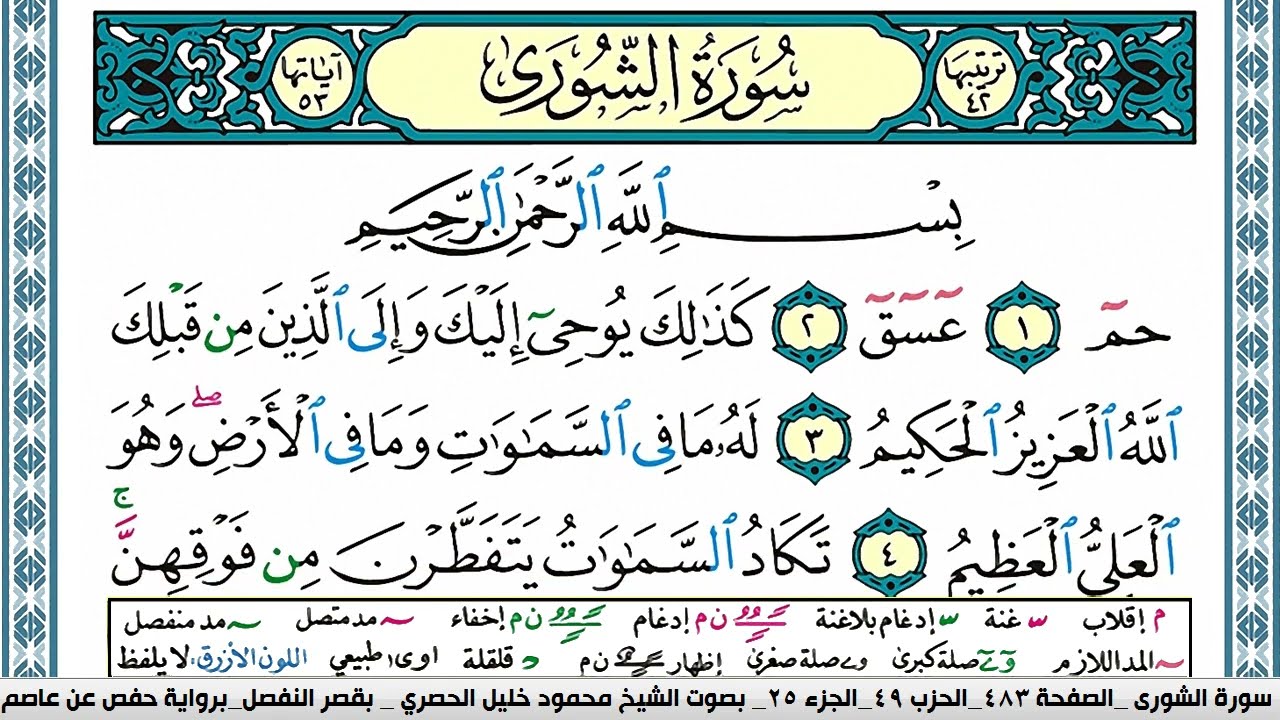 ترتيبها ٤٢ سُورَةُ الشُّورَىٰ آياتها ٥٣
بِسْمِ ٱللَّهِ ٱلرَّحْمَٰنِ ٱلرَّحِيمِ
حمٓ ١ عٓسٓقٓ ٢ كَذَٰلِكَ يُوحِىٓ إِلَيْكَ وَإِلَى ٱلَّذِينَ مِن قَبْلِكَ
ٱللَّهُ ٱلْعَزِيزُ ٱلْحَكِيمُ ٣ لَهُۥ مَا فِى ٱلسَّمَٰوَٰتِ وَمَا فِى ٱلْأَرْضِ ۖ وَهُوَ
ٱلْعَلِىُّ ٱلْعَظِيمُ ٤ تَكَادُ ٱلسَّمَٰوَٰتُ يَتَفَطَّرْنَ مِن فَوْقِهِنَّ ۚ
م إقلاب س غنة س إدغام بلاغنة ن م إدغام ن م إخفاء مد متصل مد منفصل
المد اللازم صلة كبرى صلة صغرى إظهار ن م د قلقلة اوى طبيعي اللون الأزرق: لا يلفظ
سورة الشورى _الصفحة ٤٨٣_الحزب ٤٩_الجزء ٢٥_ بصوت الشيخ محمود خليل الحصري _ بقصر النفصل_برواية حفص عن عاصم